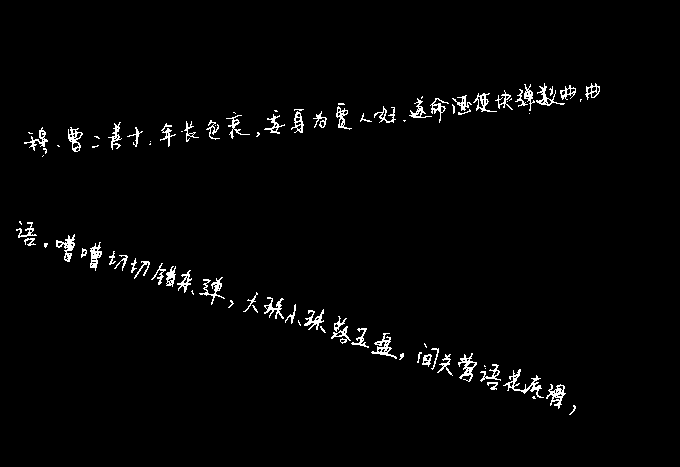 穆、曹二善才，年长色衰，委身为贾人妇。遂命酒使快弹数曲，曲
语。嘈嘈切切错杂弹，大珠小珠落玉盘，间关莺语花底滑，